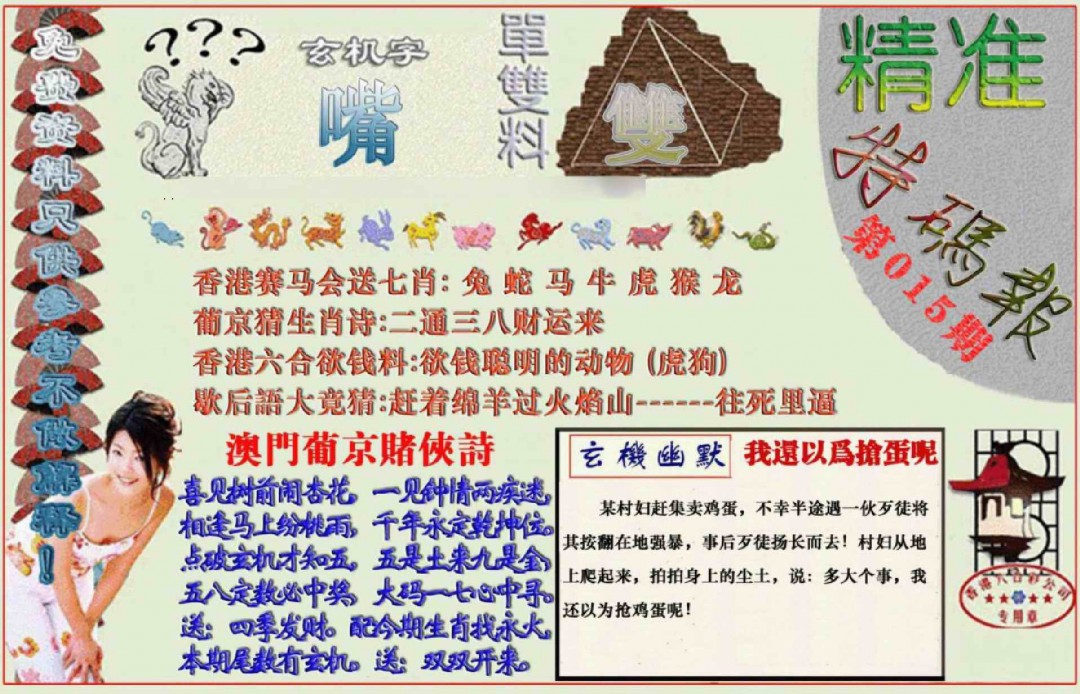 免费资料只供参考不做解释！
? ? ?
玄机字
嘴
單雙料
雙
精准
特碼報
第015期
香港赛马会送七肖: 兔 蛇 马 牛 虎 猴 龙
葡京猜生肖诗:二通三八财运来
香港六合欲钱料:欲钱聪明的动物 (虎狗)
歇后語大竟猜:赶着绵羊过火焰山------往死里逼
澳門葡京賭俠詩
喜见树前闹杏花，一见钟情两疾迷，
相逢马上纷桃雨，千年永定乾坤位。
点破玄机才知五，五是土来九是金，
五八定数必中奖，大码一七心中寻。
送：四季发财。配今期生肖找永火，
本期尾数有玄机。送：双双开来。
玄機幽默
我還以爲搶蛋呢
某村妇赶集卖鸡蛋，不幸半途遇一伙歹徒将
其按翻在地强暴，事后歹徒扬长而去！村妇从地
上爬起来，拍拍身上的尘土，说：多大个事，我
还以为抢鸡蛋呢！
香港六合彩公司
专用章